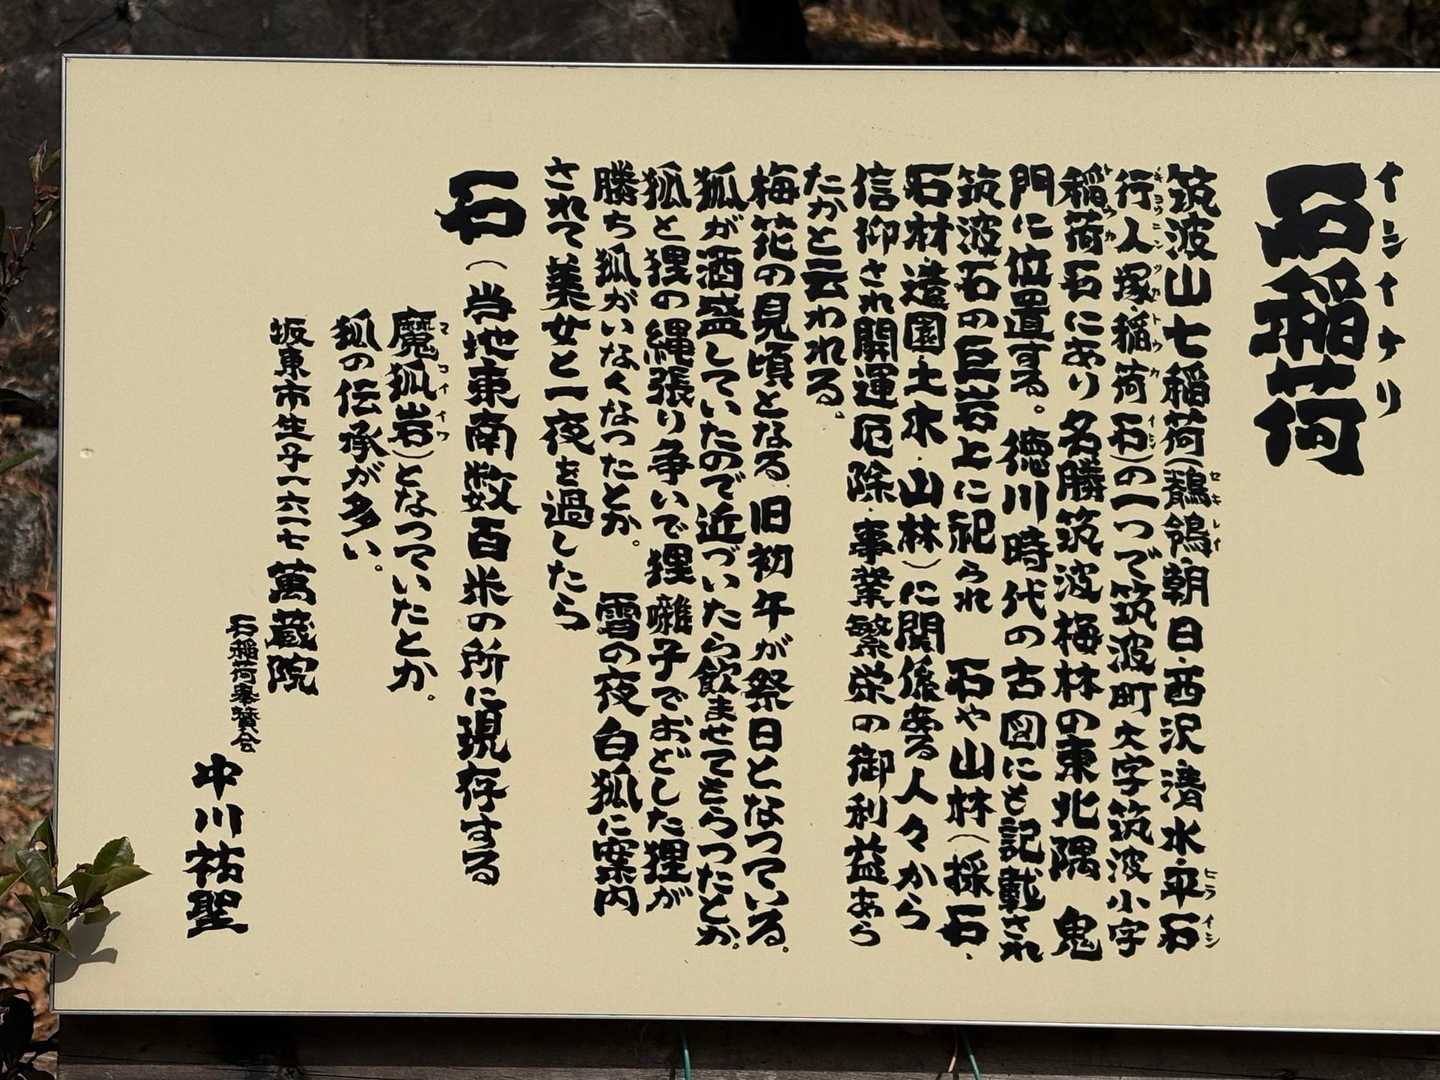 石稲荷
イシイナリ
筑波山七稲荷(鶺鴒・朝日・西沢・清水・平石・
セキレイ
ヒライシ
行人塚稲荷石)の一つで筑波町大字筑波小字
ギョウニンヅカトウカイシ
稲荷石にあり名勝筑波梅林の東北隅 鬼
トウカ
門に位置する。徳川時代の古図にも記載され
筑波石の巨岩上に祀られ 石や山林(採石・
石材・造園・土木・山林)に関係ある人々から
信仰され開運厄除・事業繁栄の御利益あら
たかと云われる。
梅花の見頃となる、旧初午が祭日となっている。
狐が酒盛していたので近づいたら飲ませてもらったとか。
狐と狸の縄張り争いで狸囃子でおどした狸が
勝ち狐がいなくなったとか。 雪の夜白狐に案内
されて美女と一夜を過したら
石(当地東南数百米の所に現存する
魔狐岩)となっていたとか。
マコイワ
狐の伝承が多い。
坂東市生子一六一七 萬蔵院
石稲荷奉賛会
中川祐聖